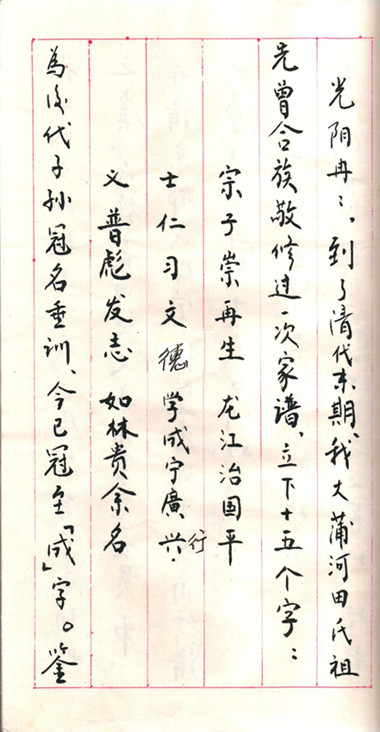 光阴冉々，到了清代末期、我大蒲河田氏祖
先曾合族敬修过一次家谱，立下十五个字：
宗子崇再生 龙江治国平
士仁习文德 学成宁廣兴．行
义普彪发志 如林贵余名
為後代子孙冠名垂训、今已冠至「成」字。鉴